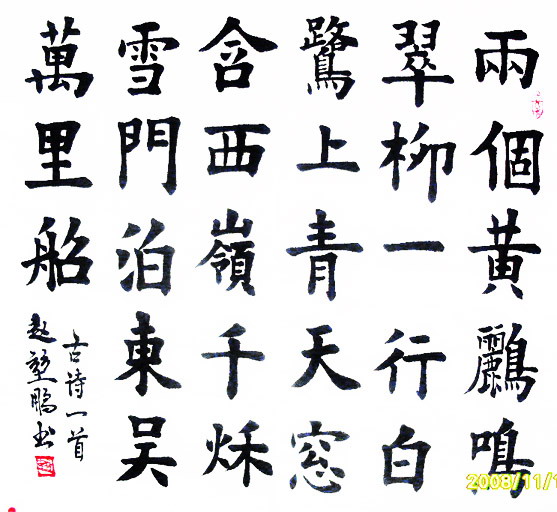 兩個黃鸝鳴
翠柳一行白
鷺上青天窓
含西嶺千秋
雪門泊東吴
萬里船
古诗一首
赵鹏书
2008/11/1